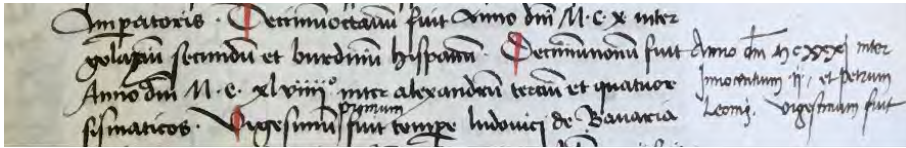 Imperatoris . Decimumoctauum fuit Anno dni M . C . X inter
gelasium secundum et burdinum hispanum . Decimumnonum fuit
Anno dni M . C . xlviiii° inter alexandrum tercium et quatuor
sismaticos . Vigesimum primum fuit tempore ludovici de Bauaria
Anno dni MCXXXI inter
Innocentium II, et petrum
Leonis. Vigesimum fuit